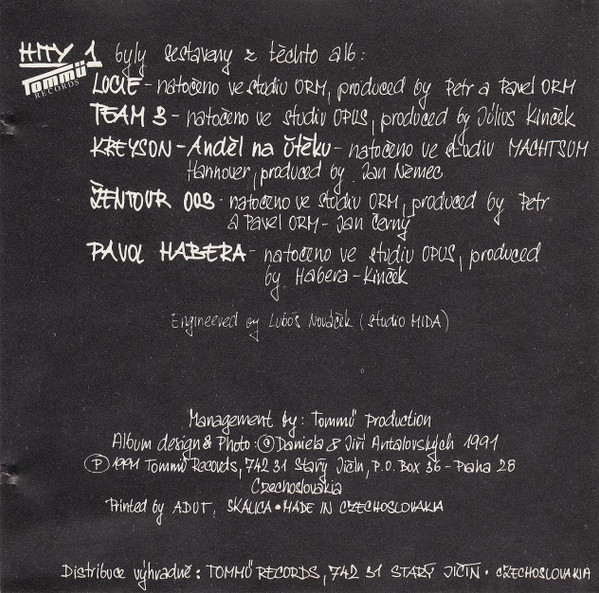 HITY 1 byly sestaveny z těchto alb:
Tommü
RECORDS
LOCIE - natočeno ve studiu ORM, produced by Petr a Pavel ORM
TEAM 3 - natočeno ve studiu OPUS, produced by Július Kinček
KREYSON - Anděl na útěku - natočeno ve studiu MACHTSUM
Hannover, produced by Jan Němec
ŽENTOUR 003 - natočeno ve studiu ORM, produced by Petr
a Pavel ORM - Jan Černý
PAVOL HABERA - natočeno ve studiu OPUS, produced
by Habera - Kinček
Engineered by Luboš Nováček (studio MIDA)
Management by: Tommü Production
Album design & Photo: © Daniela & Jiří Antalovských 1991
Ⓟ 1991 Tommü Records, 742 31 Starý Jičín, P.O. Box 36 - Praha 28
Czechoslovakia
Printed by ADUT, SKALICA • MADE IN CZECHOSLOVAKIA
Distribuce výhradně: TOMMÜ RECORDS, 742 31 STARÝ JIČÍN • CZECHOSLOVAKIA